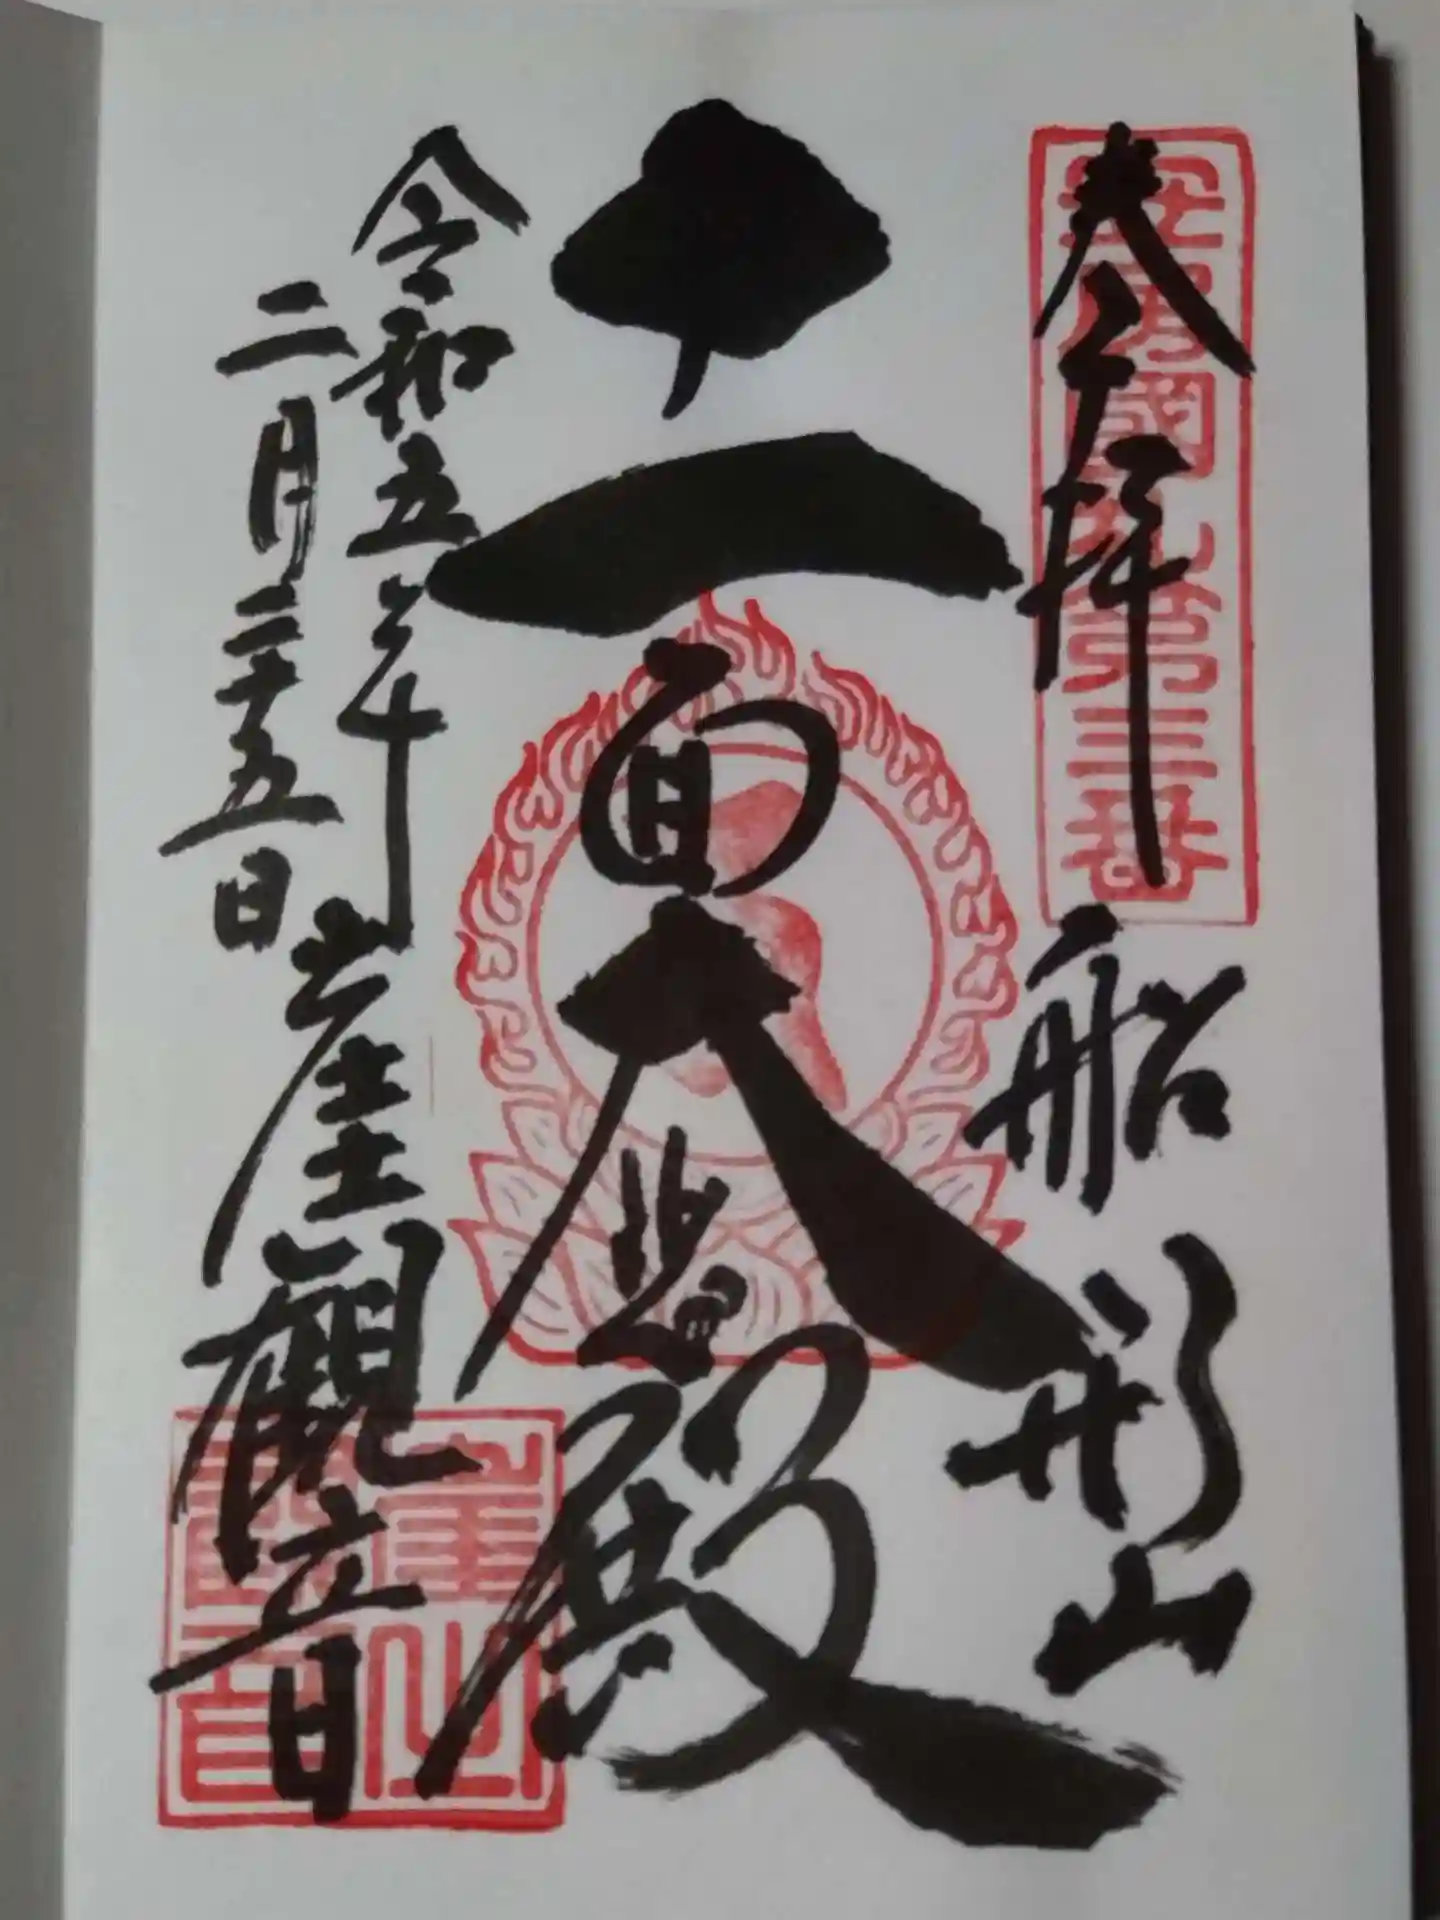 奉拝
船形山
安房國札第三番
十一面大悲殿
令和五年
二月二十五日
崖観音
崖之
観音